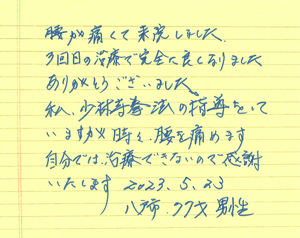 腰が痛くて来院しました。
3回目の治療で完全に良くなりました
ありがとうございました。
私、少林寺拳法の指導をして
いますが時々、腰を痛めます
自分では、治療できないので感謝
いたします 2023.5.23
八戸市 77才 男性